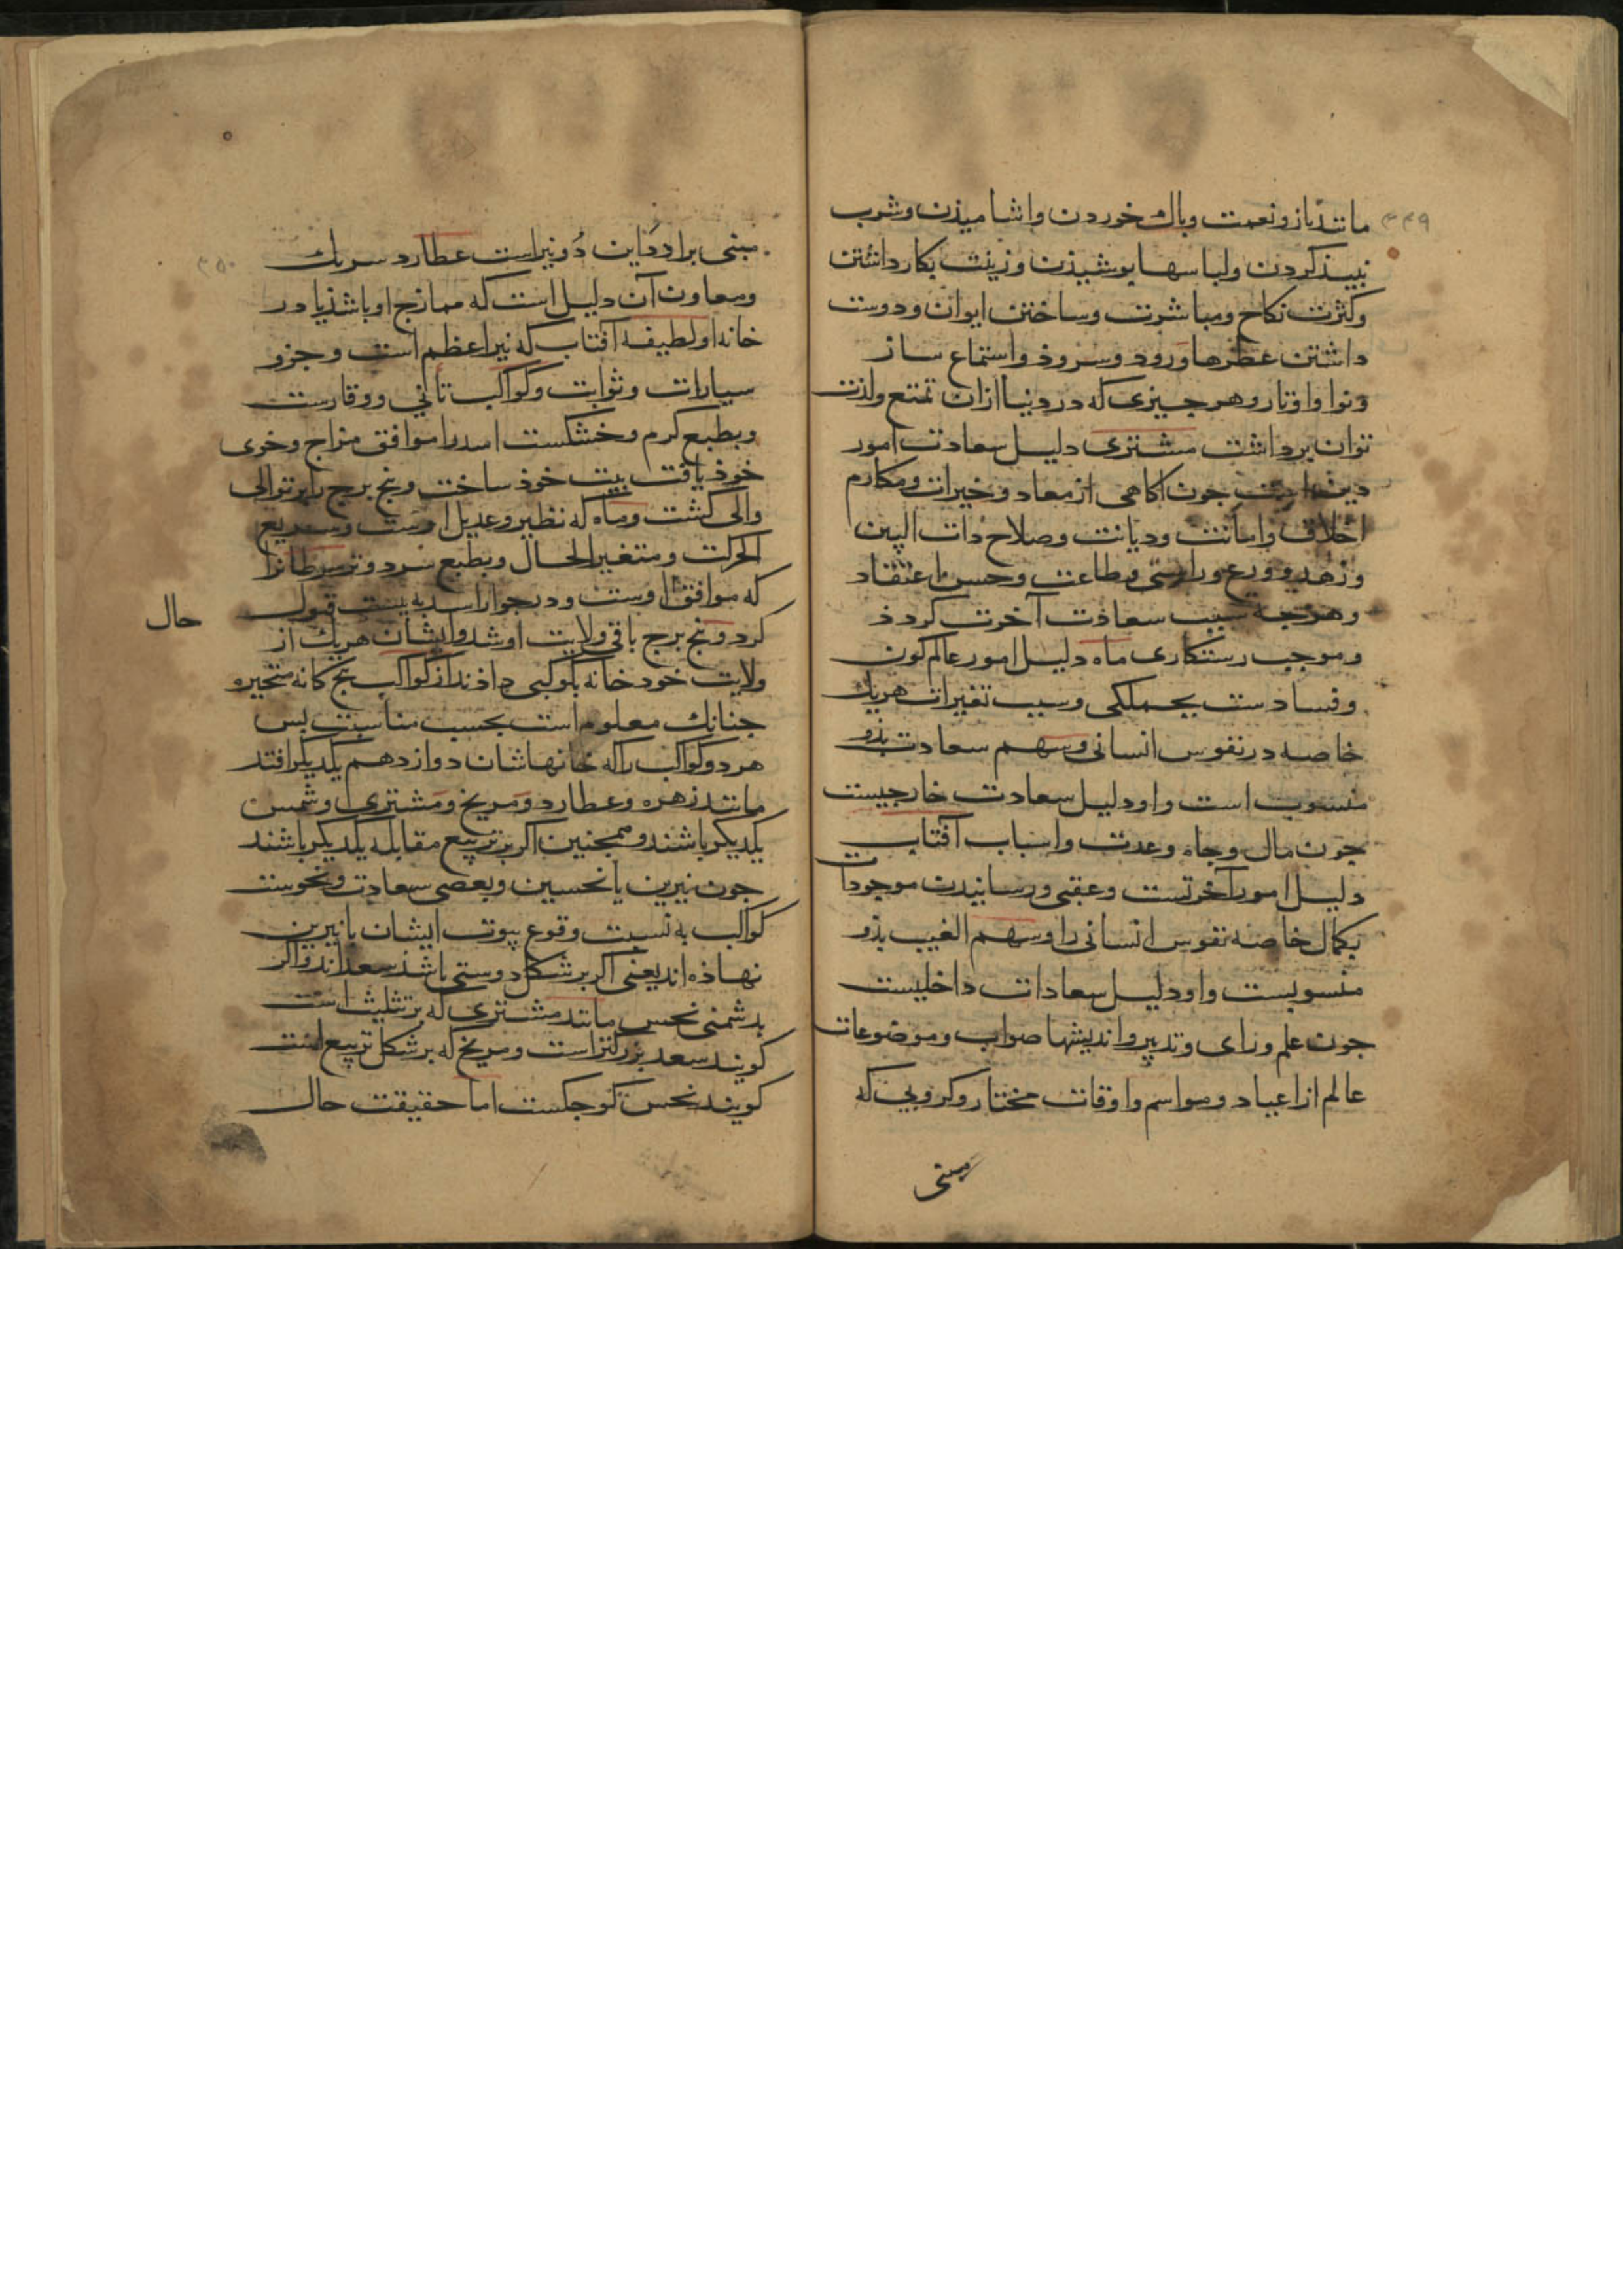 ۳۴۹
مانند ناز و نعمت و باك خوردن و اشاميذن و شرب
نبيذ كردن و لباسها بوشيذن و زينت بكار داشتن
و كثرت نكاح و مباشرت و ساختن ايوان و دوست
داشتن عطرها و رود و سروذ و استماع ساز
و نوا و اوتار و هر جيزى كه در دنيا ازان تمتع و لذت
توان برداشت مشترى دليل سعادت امور
دين جون اكاهى از معاد و خيرات و مكارم
اخلاق و امانت و ديانت و صلاح ذات البين
و زهد و ورع و راستى و طاعت و حسن اعتقاد
و هرجه سبب سعاذت آخرت كردذ
و موجب رستكارى ماه دليل امور عالم كون
و فسادست بجملكى و سبب تغيرات هريك
خاصه در نفوس انسانى و سهم سعادت بذو
منسوب است و او دليل سعادت خارجيست
جون مال و جاه و عدت و اسباب آفتاب
دليل امور آخرتست و عقبى و رسانيدن موجودات
بكمال خاصه نفوس انسانى را و سهم الغيب بذو
منسوبست و او دليل سعادات داخليست
جون علم و راى و تدبير و انديشها صواب و موضوعات
عالم از اعياد و مواسم و اوقات مختار و كروبى كه
مبنى
۳۵۰
مبنى بر ادوار اين دو نير است عطارد سريك
و معاون آن دليل است كه ممازج او باشذ يا در
خانه او لطيفه آفتاب كه نير اعظم است و جزو
سيارات و ثوابت و كواكب تأنى و وقارست
و بطبع كرم و خشكست اسد را موافق مزاج و خوى
خوذ يافت بيت خوذ ساخت و بنج برج را بر توالى
والى كشت و ماه كه نظير و عديل اوست و سريع
الحركت و متغير الحال و بطبع سرد و تر سرطان را
كه موافق اوست و در جوار اسد به بيت قبول
كرد و بنج برج باقى ولايت او شد و ايشان هريك از
حال
ولايت خود خانه بكوكبى داذند از كواكب بنج كانه متحيره
جنانك معلوم است بحسب مناسبت بس
هر دو كواكب را كه خانهاشان دوازدهم يكديكر افتد
مانند زهره و عطارد و مريخ و مشترى و شمس
يكديكر باشند و همجنين اكر بر تربيع مقابله يكديكر باشند
جون نيرين با نحسين و بعضى سعادت و نحوست
كواكب به نسبت وقوع بيوت ايشان با نيرين
نهاذه اند يعنى اكر بر شكل دوستى باشذ سعد اند و اكر
بدشمنى نحس مانند مشترى كه بر تثليث است
كويند سعد بزركتر است و مريخ كه بر شكل تربيع است
كويند نحس كوجكست اما حقيقت حال